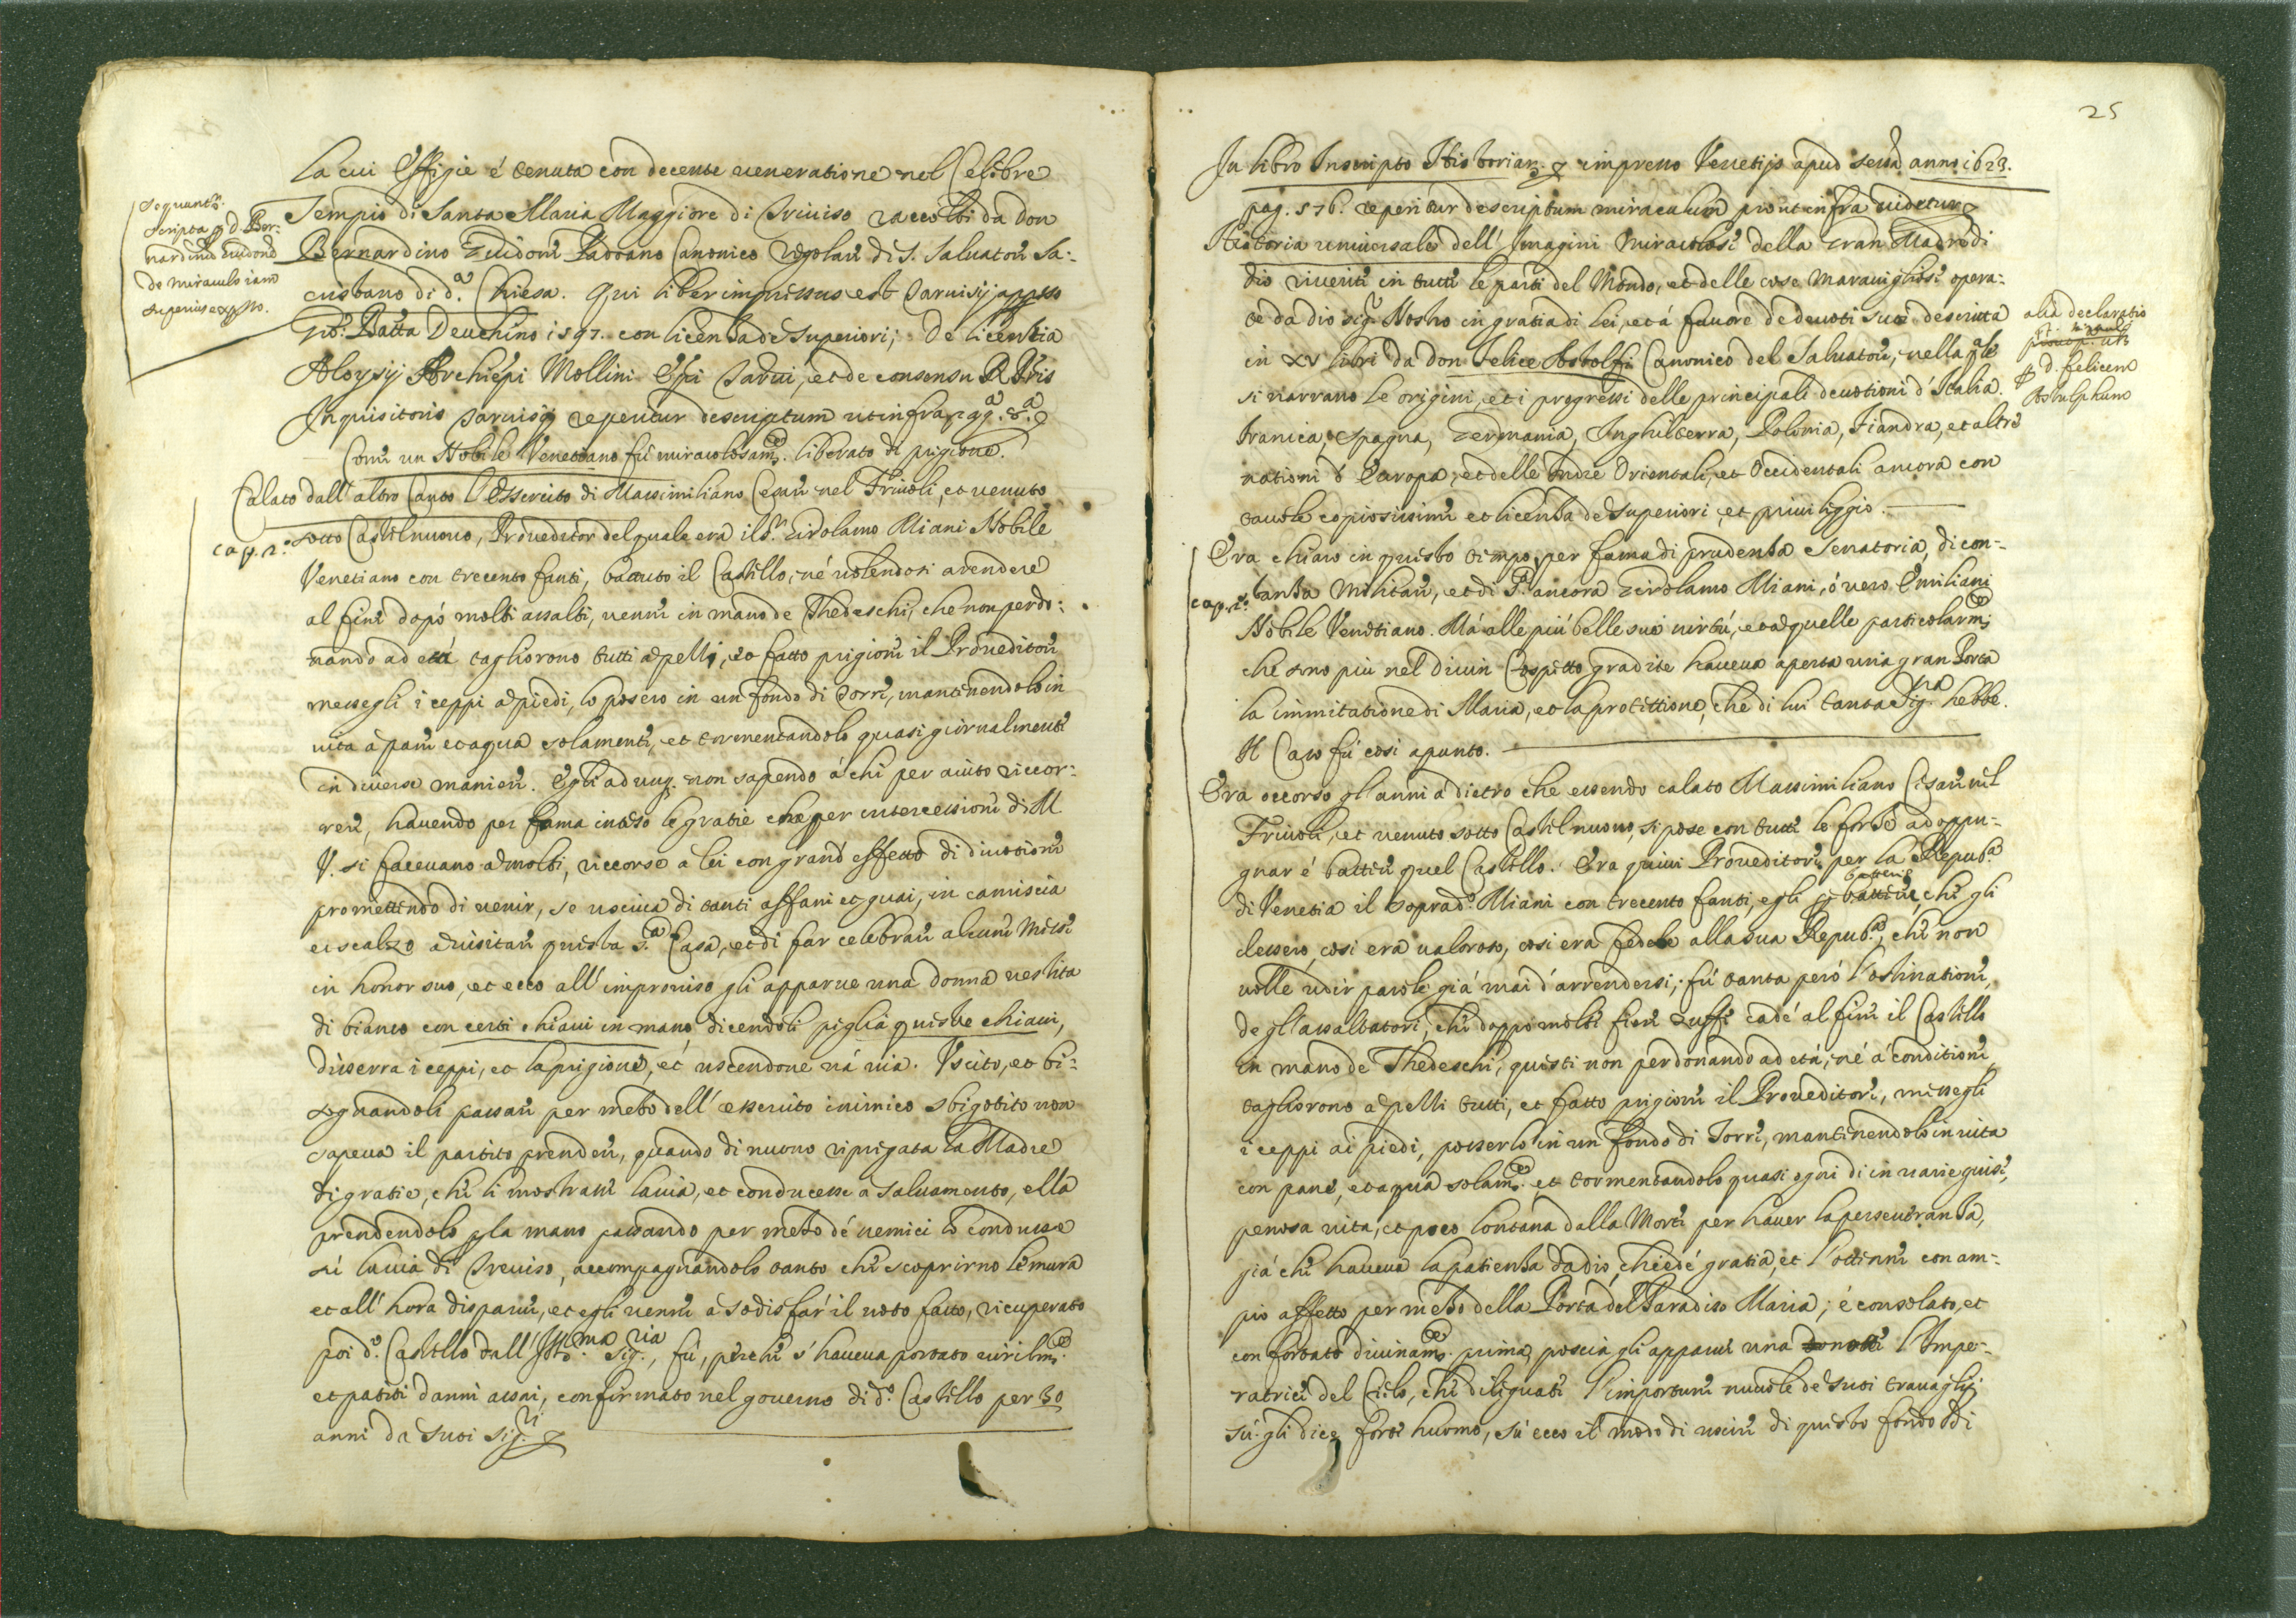 la cui Effigie é tenuta con decente ueneratione nel Celebre
Sequunt.r
scripta p d. Ber-
nardinũ Zuidonẽ
de miraculo iam
superius exposto.
Tempio di Santa Maria Maggiore di Treuiso raccolti da don
Bernardino Zuidoni Padoano Canonico regolare di S. Saluatore Sa:
cristano di d.a Chiesa. Qui liber impressus est Taruisij appsso
Gio: Batta Deuchino 1597. con licentia de Superiori; De licentia
Aloysij Archiepi Mollini Epi Tarui, et de consensu R Pris
Inquisitoris Taruisij reperitur descriptum ut infra
Come un Nobile Venetiano fú miracolosam.e liberato di prigione.
Calato dall' altro Canto l'Essercito di Massimiliano Cesare nel Friuoli, et uenuto
cap. 2.o sotto Castelnuouo, Proueditor del quale era il S.r Girolamo Miani Nobile
Venetiano con trecento fanti, battuto il Castello, né uolendosi arendere
al fine dopó molti assalti, uenne in mano de Thedeschi, che non perdo:
nando ad etá tagliorono tutti a pezzi, et fatto prigione il Proueditore
messegli i ceppi a piedi, lo posero in un fondo di Torre, mantenendolo in
uita a pane et aqua solamente, et tormentandolo quasi giornalmente
in diuerse maniere. Egli adunq. non sapendo á chi per aiuto riccor:
rere, hauendo per fama inteso le gratie che per intercessione di M.
V. si faceuano a molti, riccorse a lei con grand' effetto di diuotione
promettendo di uenir, se usciua di tanti affani et guai, in camiscia
et scalzo a uisitare questa S.a Casa, et di far celebrare alcune Messe
in honor suo, et ecco all' improuiso gli apparue una donna uestita
di bianco con certe chiaui in mano, dicendoli piglia queste chiaui,
disserra i ceppi, et la prigione, et uscendone uá uia. Vscito, et bi:
sognandoli passare per mezo dell' essercito inimico sbigotito non
sapeua il partito prendere, quando di nuouo ripregata la Madre
di gratie, che li mostrasse la uia, et conducesse a saluamento, ella
prendendolo p la mano passando per mezo de nemici lo condusse
su la uia di Treuiso, accompagnandolo tanto che scoprirno le mura
et all' hora disparue, et egli uenne a sodisfar il uoto fatto, ricuperato
poi d.o Castello dall' Ill.ma Sig.ria, fú, perche s' haueua portato uirilm.e
et patiti danni assai, confirmato nel gouerno di d.o Castello per 30
anni da suoi Sig.ri
25
In libro Inscripto Historiar. impresso Venetijs apud sessa anno 1623.
pag. 576. reperitur descriptum miraculum prout infra uidetur
Historia uniuersale dell' Imagini Miracolose della Gran Madre di
Dio riuerite in tutte le parti del Mondo, et delle cose Marauigliose opera:
te da dio sig.r Nostro in gratia di lei, et á fauore de deuoti suoi descritta
in XV libri da don Felice Astolfi Canonico del Saluatore, nella q.le
alia declaratio
p d. felicem
Astulphum
si narrano le origini, et i progressi delle principali deuotioni d' Italia.
Francia, Spagna, Germania, Inghilterra, Polonia, Fiandra, et altre
nationi d' Europa, et delle Indie Orientali, et Occidentali ancora con
tauole copiosissime et licentia de Superiori, et priuileggio.
Era chiaro in questo tempo, per fama di prudenza Senatoria, di con-
cap. 2.o stanza Militare, et di P. ancora Girolamo Miani, ó uero Emiliani
Nobile Venetiano. Má alle piú belle sue uirtú, et a quelle particolarm.e
che sono piu nel diuin Cospetto gradite haueua aperta una gran Porta
la immitatione di Maria, et la protettione, che di lui tanta Sig.ra hebbe.
Il Caso fú cosi apunto.
Era occorso gl'anni a dietro che essendo calato Massimiliano Cesare nel
Friuoli, et uenuto sotto Castelnuouo, si pose con tutte le forze ad oppu-
gnar é battere quel Castello. Era quiui Proueditore per la Repub.a
di Venetia il soprad.o Miani con trecento fanti, egli battere, che gli
dessero, cosi era ualoroso, cosi era fedele alla sua Repub.a, che non
uolle udir parole giá mai d' arrendersi; fú tanta peró l'ostinatione
de gl' assaltatori, che doppo molte fiere zuffe cadé al fine il Castello
in mano de Thedeschi, questi non perdonando ad etá, né á conditione
tagliorono a pezzi tutti, et fatto prigione il Proueditore, messegli
i ceppi ai piedi, poserlo in un fondo di Torre, mantenendolo in uita
con pane, et aqua solam.e et tormentandolo quasi ogni di in uarie guise,
penosa uita, et poco lontana dalla Morte per hauer la perseueranza,
giá che haueua la patienza da dio, chiedé gratia, et l'ottenne con am-
pio affetto per mezo della Porta del Paradiso Maria; é consolato, et
confortato diuinam.e prima, poscia gli apparue una l'Impe-
ratrice del Cielo, che dileguate l'importune nuuole de suoi trauagli
sú gli dice forte huomo, sú ecco il modo di uscire di questo fondo di